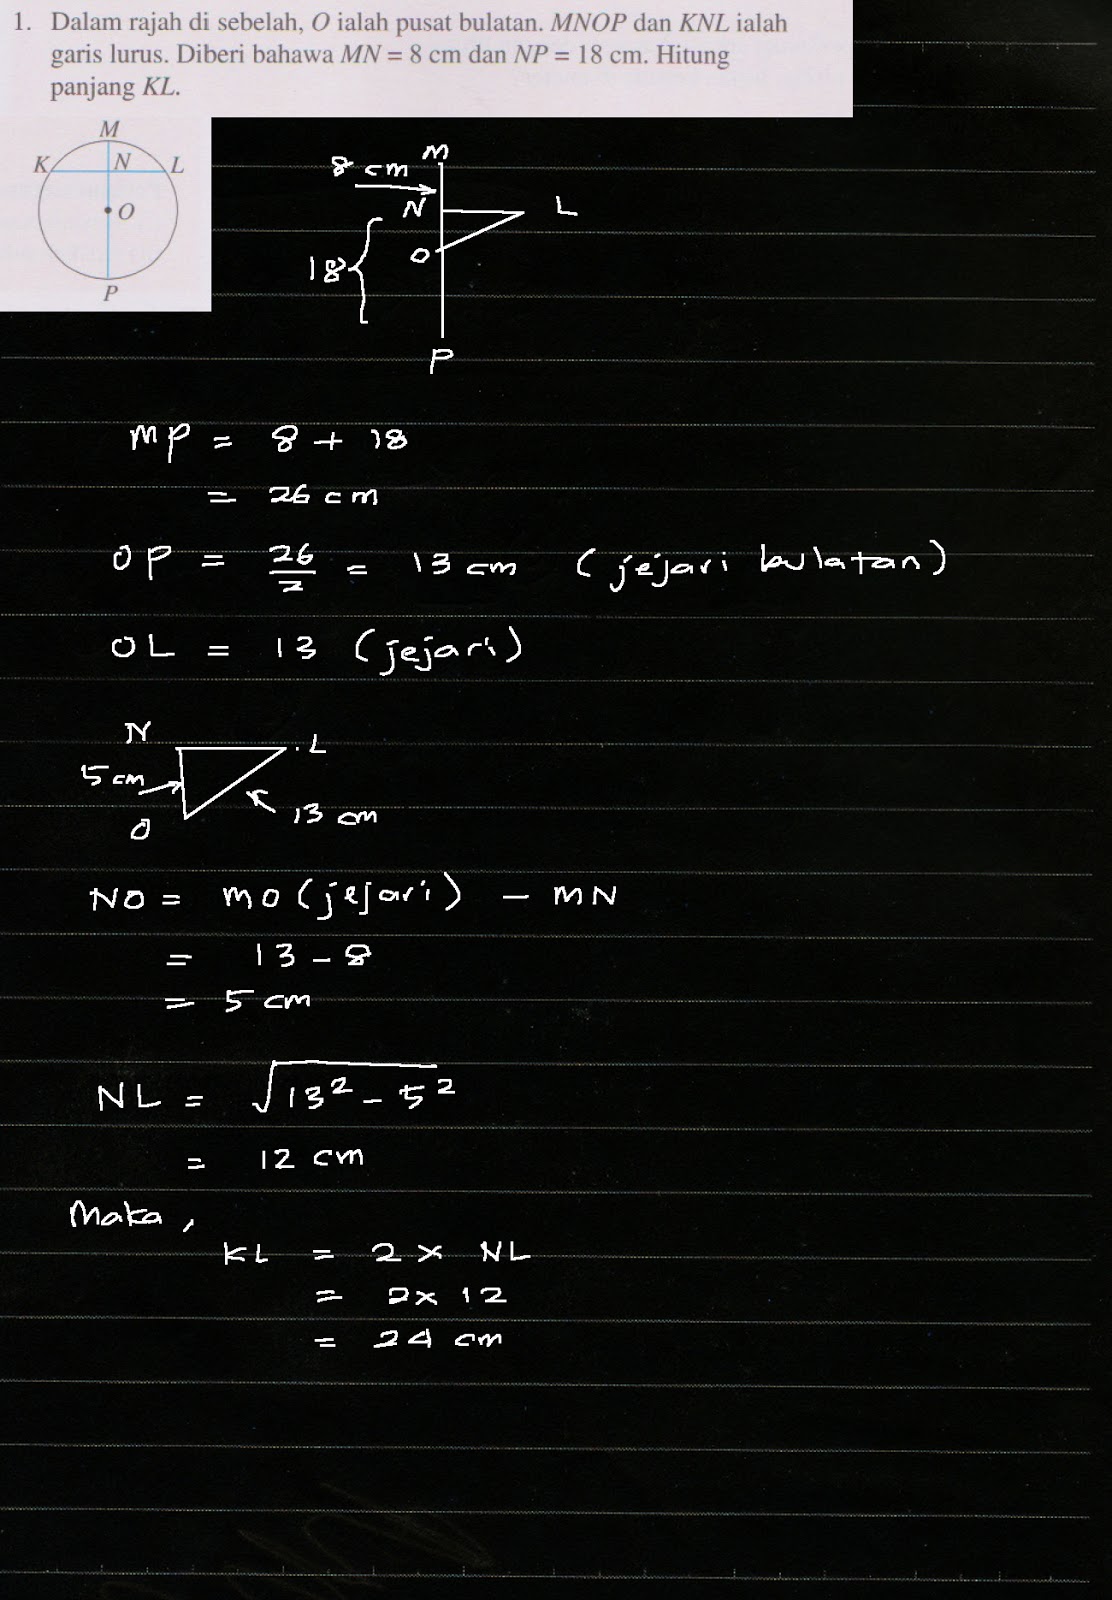 1. Dalam rajah di sebelah, O ialah pusat bulatan. MNOP dan KNL ialah
garis lurus. Diberi bahawa MN = 8 cm dan NP = 18 cm. Hitung
panjang KL.
M
K N L
O
P
8 cm M
N L
18 O
P
MP = 8 + 18
= 26 cm
OP = 26/2 = 13 cm (jejari bulatan)
OL = 13 (jejari)
N L
5 cm
O 13 cm
NO = MO (jejari) - MN
= 13 - 8
= 5 cm
NL = √13² - 5²
= 12 cm
Maka,
KL = 2 × NL
= 2 × 12
= 24 cm